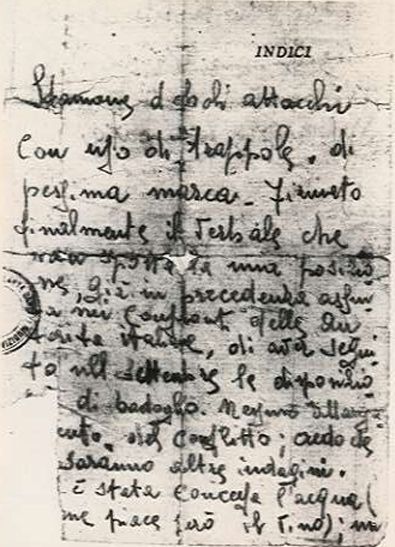 INDICI
Stamane deboli attacchi
con uso di trappole, di
pessima marca. Firmato
finalmente il verbale che
la mia posizio
ne, già in precedenza assun
a nei confronti delle Au
torità italiane, di aver segui
to nell settembre le disposizio
di badoglio. Nessuno
del conflitto; credo che
saranno altre indagini.
È stata concessa l'acqua (
me piace però il vino); ma